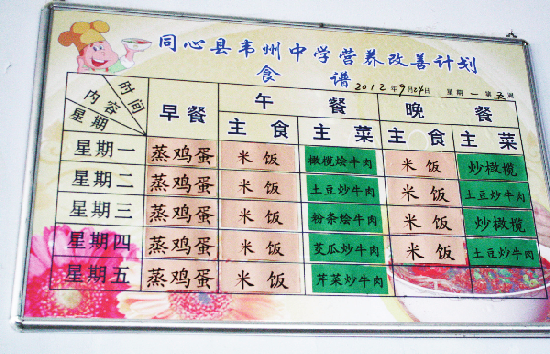 同心县韦州中学营养改善计划
食 谱
2012年9月24日 星期一 第五周
时间
内容
星期
早餐 午餐 晚餐
主食 主菜 主食 主菜
星期一 蒸鸡蛋 米饭 橄榄烩牛肉 米饭 炒橄榄
星期二 蒸鸡蛋 米饭 土豆炒牛肉 米饭 土豆炒牛肉
星期三 蒸鸡蛋 米饭 粉条烩牛肉 米饭 炒橄榄
星期四 蒸鸡蛋 米饭 茭瓜炒牛肉 米饭 土豆炒牛肉
星期五 蒸鸡蛋 米饭 芹菜炒牛肉